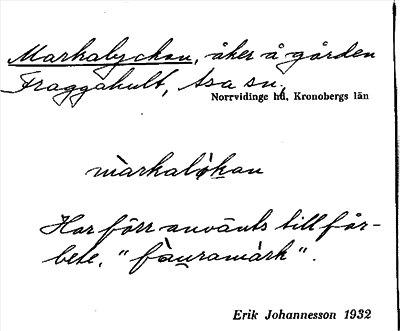 Markalyckan, åker å gården
Fraggahult, Asa sn,
Norrvidinge hd, Kronobergs län
màrkalỳkan
Har förr använts till får-
bete, "fàuramàrk".
Erik Johannesson 1932